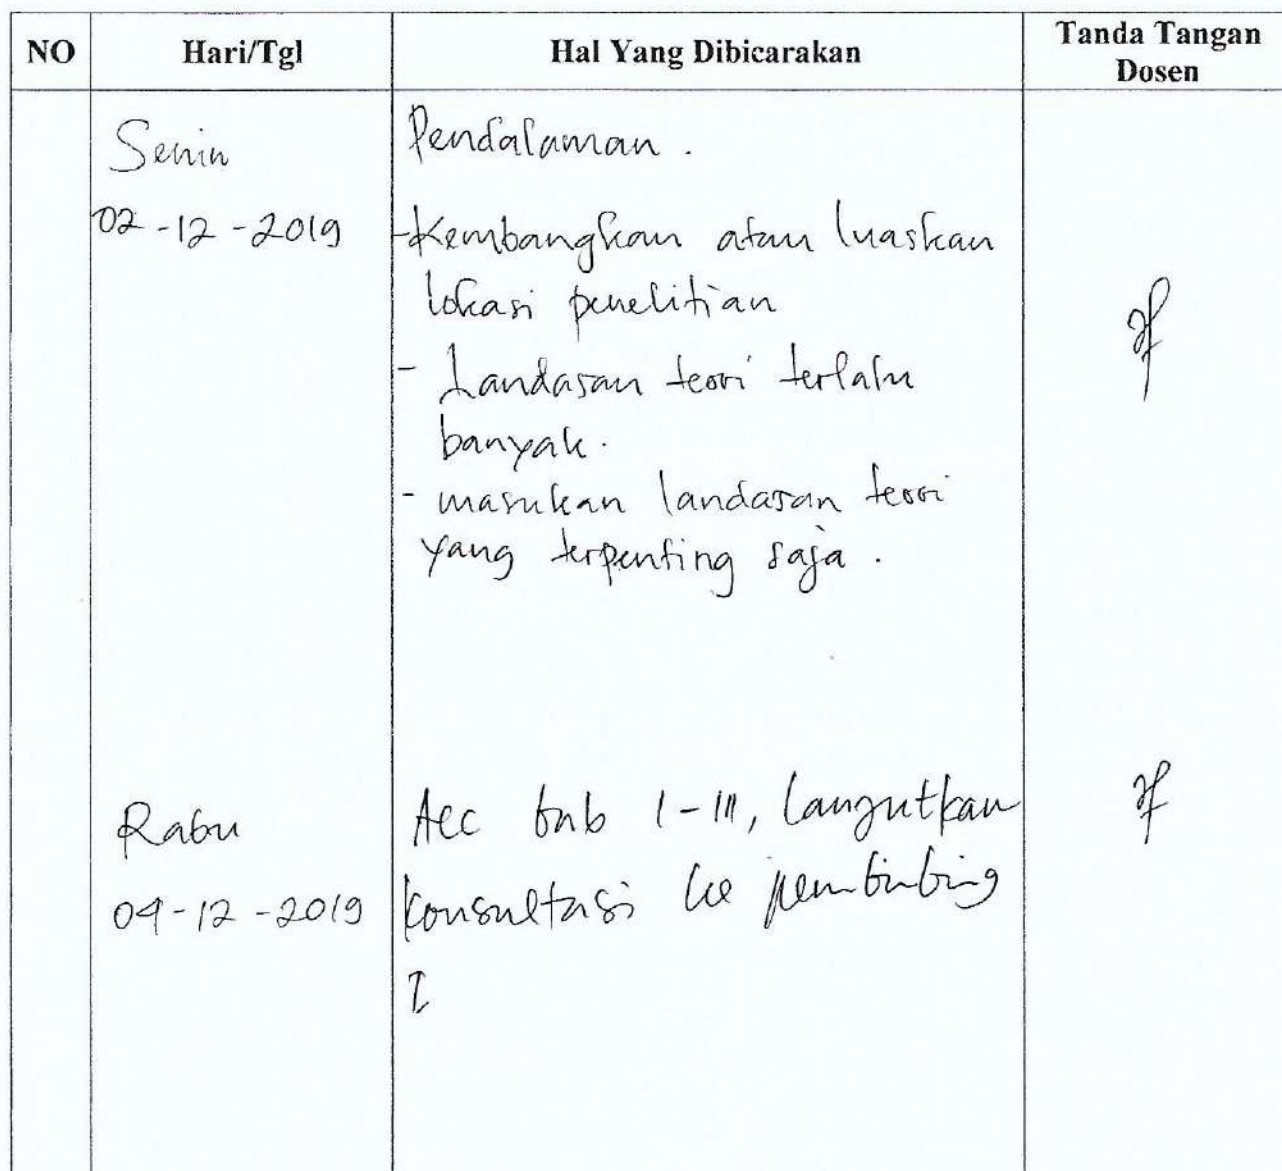 NO Hari/Tgl Hal Yang Dibicarakan Tanda Tangan Dosen
Senin
02-12-2019
Pendalaman.
- Kembangkan atau luaskan
lokasi penelitian
- Landasan teori terlalu
banyak.
- masukan landasan teori
yang terpenting saja.
Rabu
04-12-2019
Acc bab I-III, lanjutkan
konsultasi ke pembimbing
I